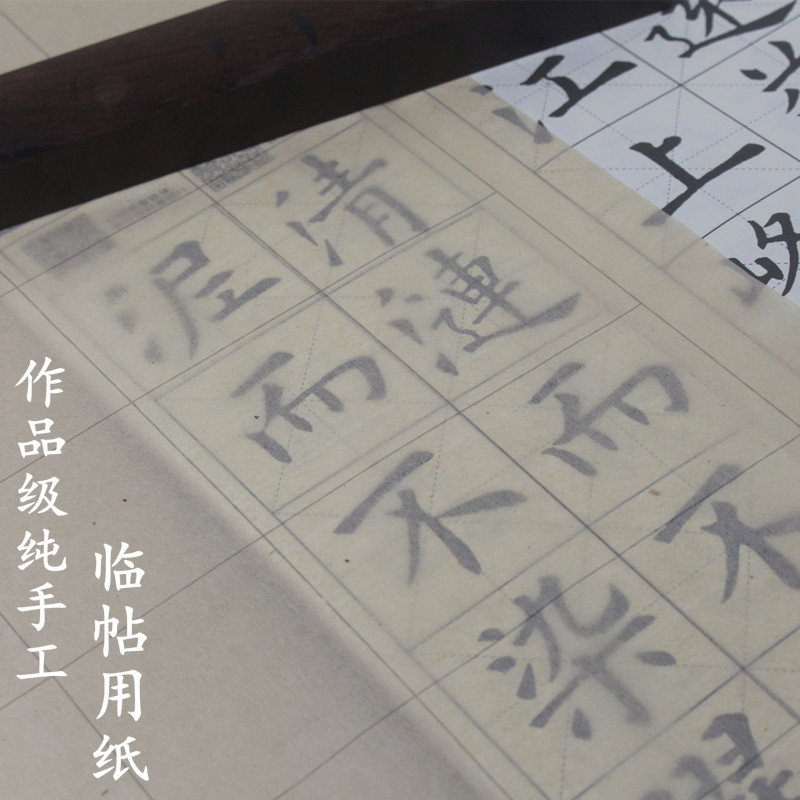 作品级纯手工
临帖用纸
泥而不染
清漣而不
江上